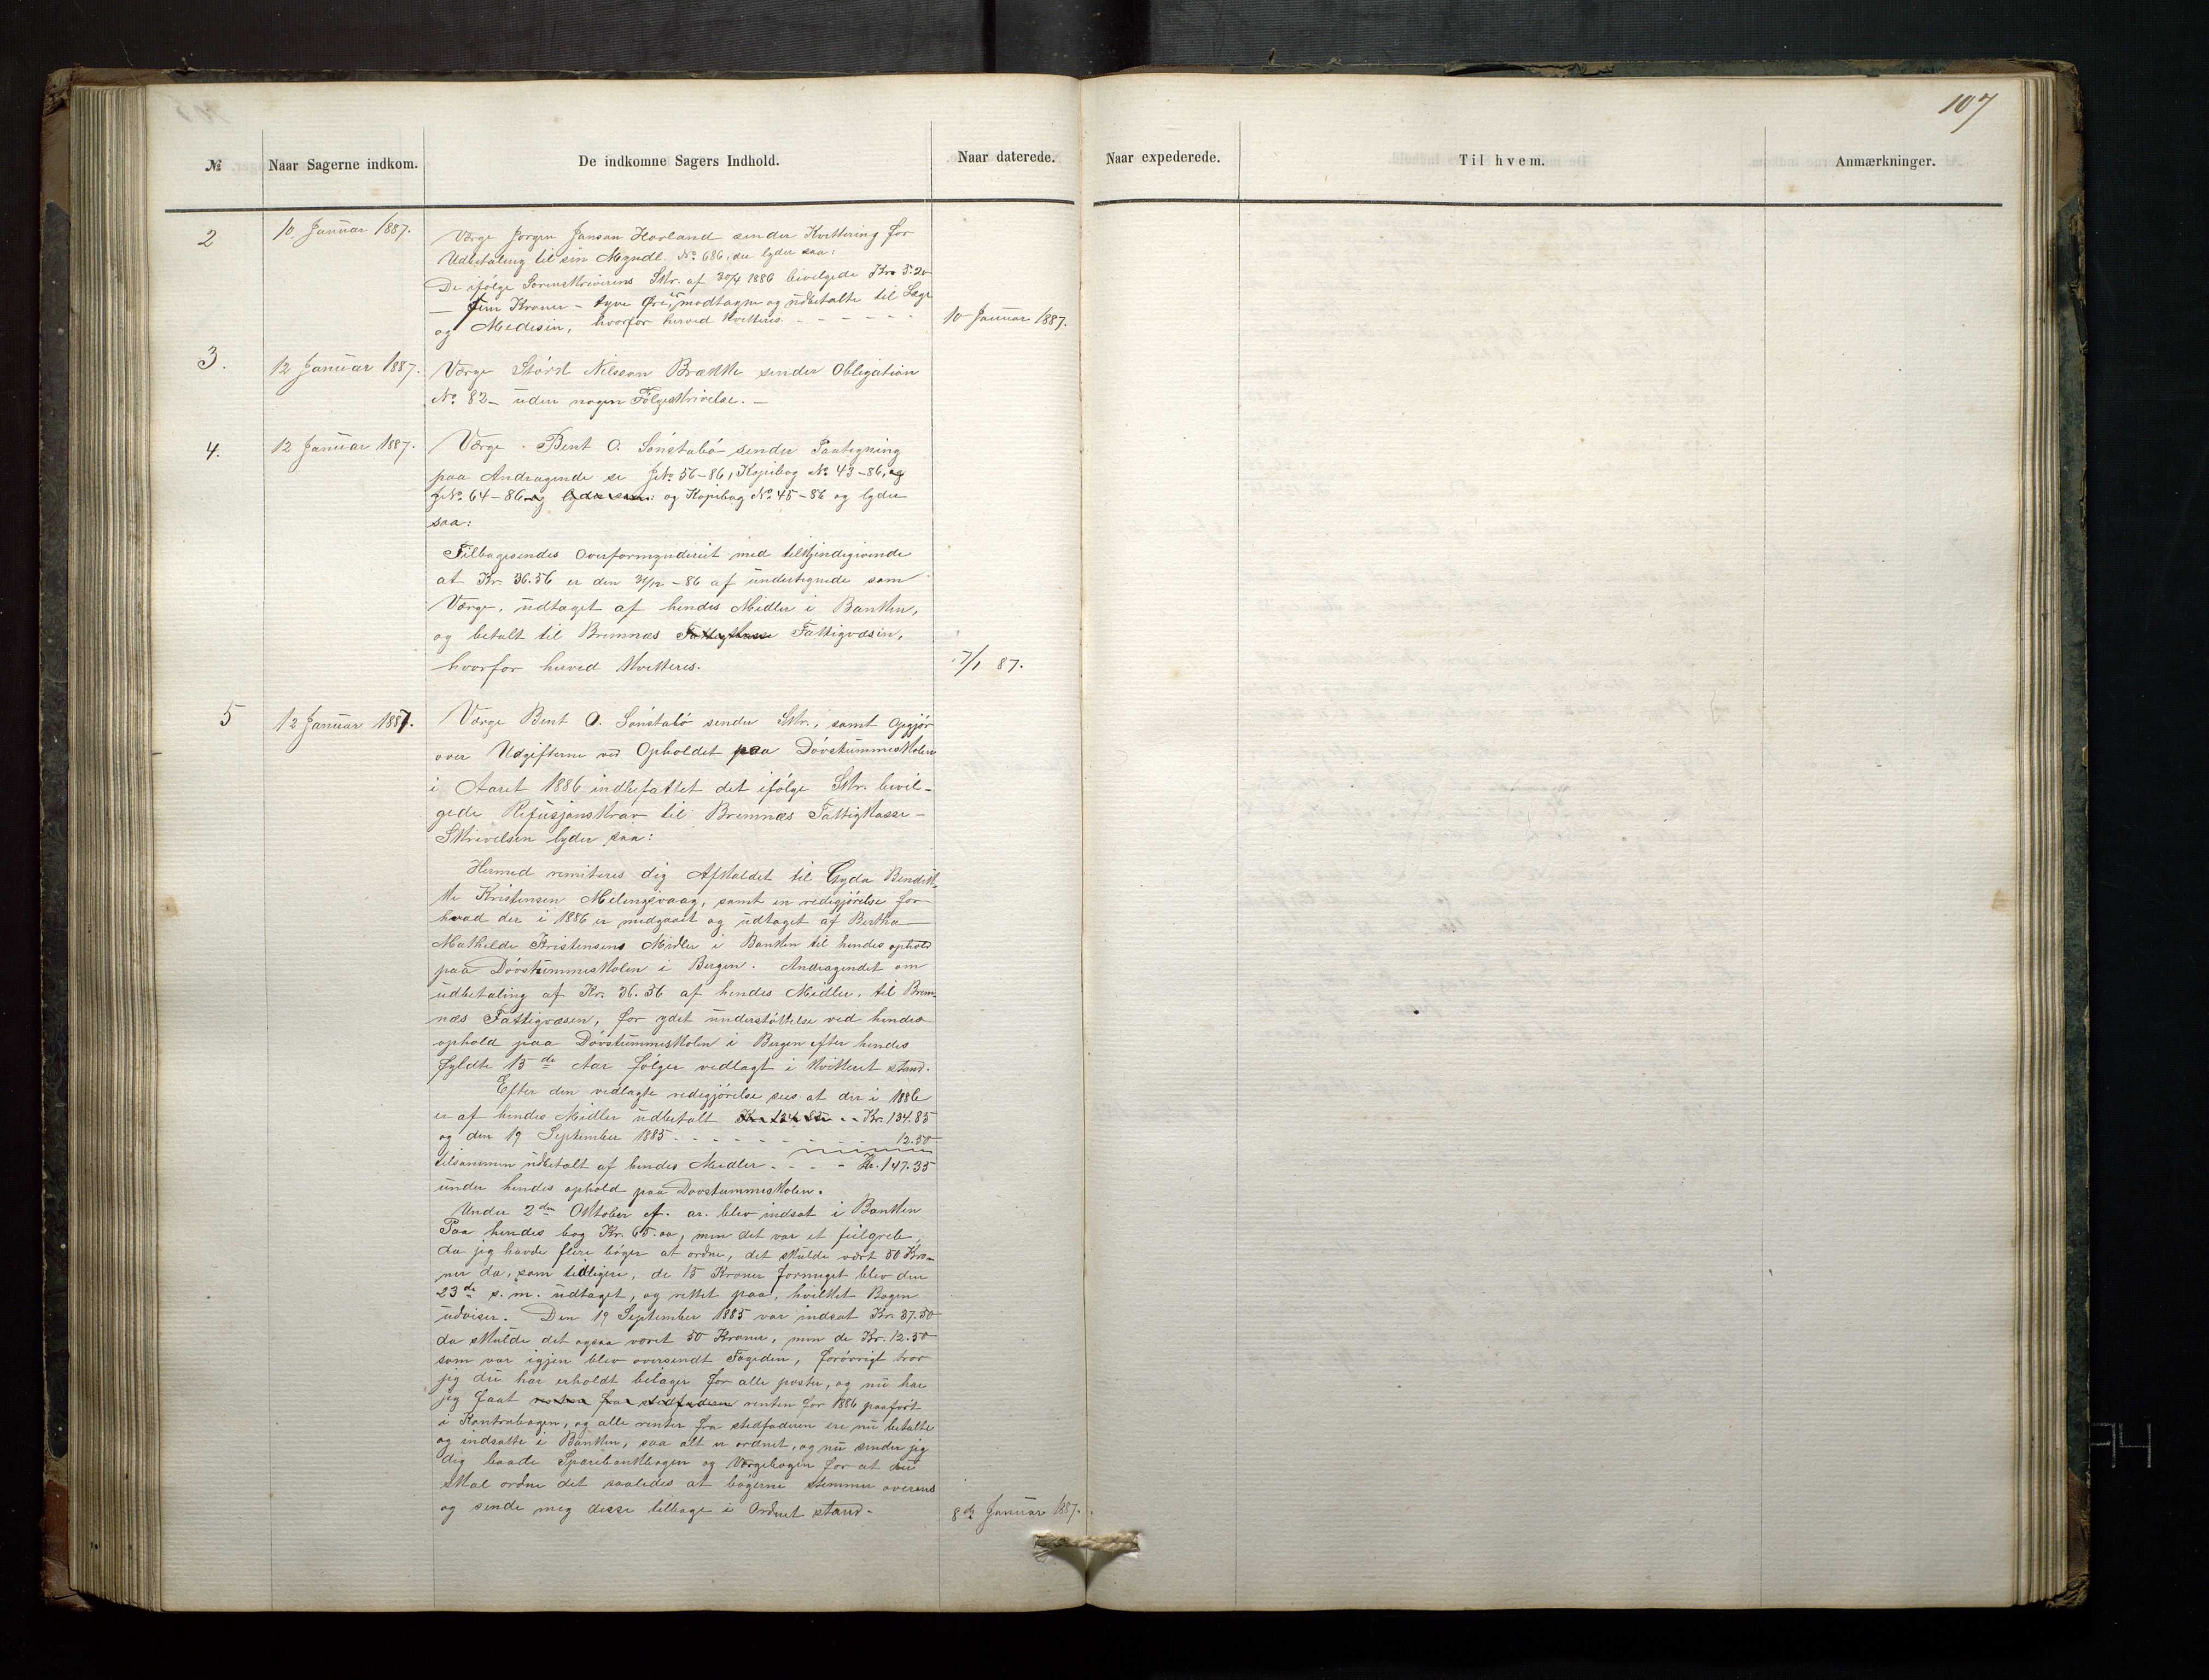 107
№
Naar Sagerne indkom.
De indkomne Sagers Indhold.
Naar daterede.
Naar expederede.
Til hvem.
Anmærkninger.
2
10 Januar 1887.
Værge Jørgen Janson Hovland sender Kvittering for
Udbetaling til sin Myndl. No 686, der lyder saa:
De ifølge Sorenskriverens Skr. af 30/4 1886 bevilgede Kr. 5.20
– fem Kroner – tyve Øre, er modtagne og udbetalte til Læge
og Medisin, hvorfor herved kvitteres.
10 Januar 1887.
3.
12 Januar 1887.
Værge Størd Nilsson Brække sender Obligation
No. 82 – uden nogen Følgeskrivelse. –
4.
12 Januar 1887.
Værge Bent O. Sønstabø sender Paategning
paa Andragende se JNo. 56-86, Kopibog No 43-86, og
JNo. 64-86 og lyder saa: og Kopibog No 45-86 og lyder
saa:
Tilbagesendes Overformynderiet med tilkjendegivende
at Kr. 36.56 er den 31/12-86 af undertegnede som
Værge, udtaget af hendes Midler i Banken,
og betalt til Bremnæs Fattigkasse Fattigvæsin,
hvorfor herved kvitteres.
7/1 87.
5
12 Januar 1887.
Værge Bent O. Sønstabø sender Skr., samt Opgjør
over Udgifterne ved Opholdet paa Døvstummeskolen
i Aaret 1886 indbefattet det ifølge Skr. bevil-
gede Refusjonskrav til Bremnæs Fattigkasse –
Skrivelsen lyder saa:
Hermed remiteres dig Afkaldet til Gyda Bendik-
ke Kristensen Melingsvaag, samt en redigjørelse for
hvad der i 1886 er medgaaet og udtaget af Bertha
Mathilde Kristensens Midler i Banken til hendes ophold
paa Døvstummeskolen i Bergen. Andragendet om
udbetaling af Kr. 36.56 af hendes Midler, til Brem-
næs Fattigvæsen, for ydet understøttelse ved hendes
ophold paa Døvstummeskolen i Bergen efter hendes
fyldte 15de Aar følger vedlagt i kvitteret stand.
Efter den vedlagte redigjørelse sees at der i 1886
er af hendes Midler udbetalt Kr. 134.85 - - Kr. 134.85
og den 19 September 1885 - - - - - - - 12.50
tilsammen udbetalt af hendes Midler - - - - Kr. 147.35
under hendes ophold paa Døvstummeskolen.
Under 2den Oktober f. ar. blev indsat i Banken
Paa hendes bog Kr. 65.00, men det var et feilgreb,
da jeg havde flere bøger at ordne, det skulde vært 50 Kro-
ner da, som tidligere, de 15 Kroner formeget blev den
23de s. m. udtaget, og rettet paa, hvilket Bogen
udviser. Den 19 September 1885 var indsat Kr. 37.50
da skulde det ogsaa været 50 Kroner, men de Kr. 12.50
som var igjen blev oversendt Fogeden, forøvrigt tror
jeg du har erholdt bilager for alle poster, og nu har
jeg faat renten fra stedfaderen renten for 1886 paaført
i Kontrabogen, og alle renter fra stedfaderen ere nu betalte
og indsatte i Banken, saa alt er ordnet, og nu sender jeg
dig baade Sparebankbogen og Værgebogen for at du
skal ordne det saaledes at bøgerne stemmer overens
og sende meg disse tilbage i Ordnet stand.
8de Januar 1887.